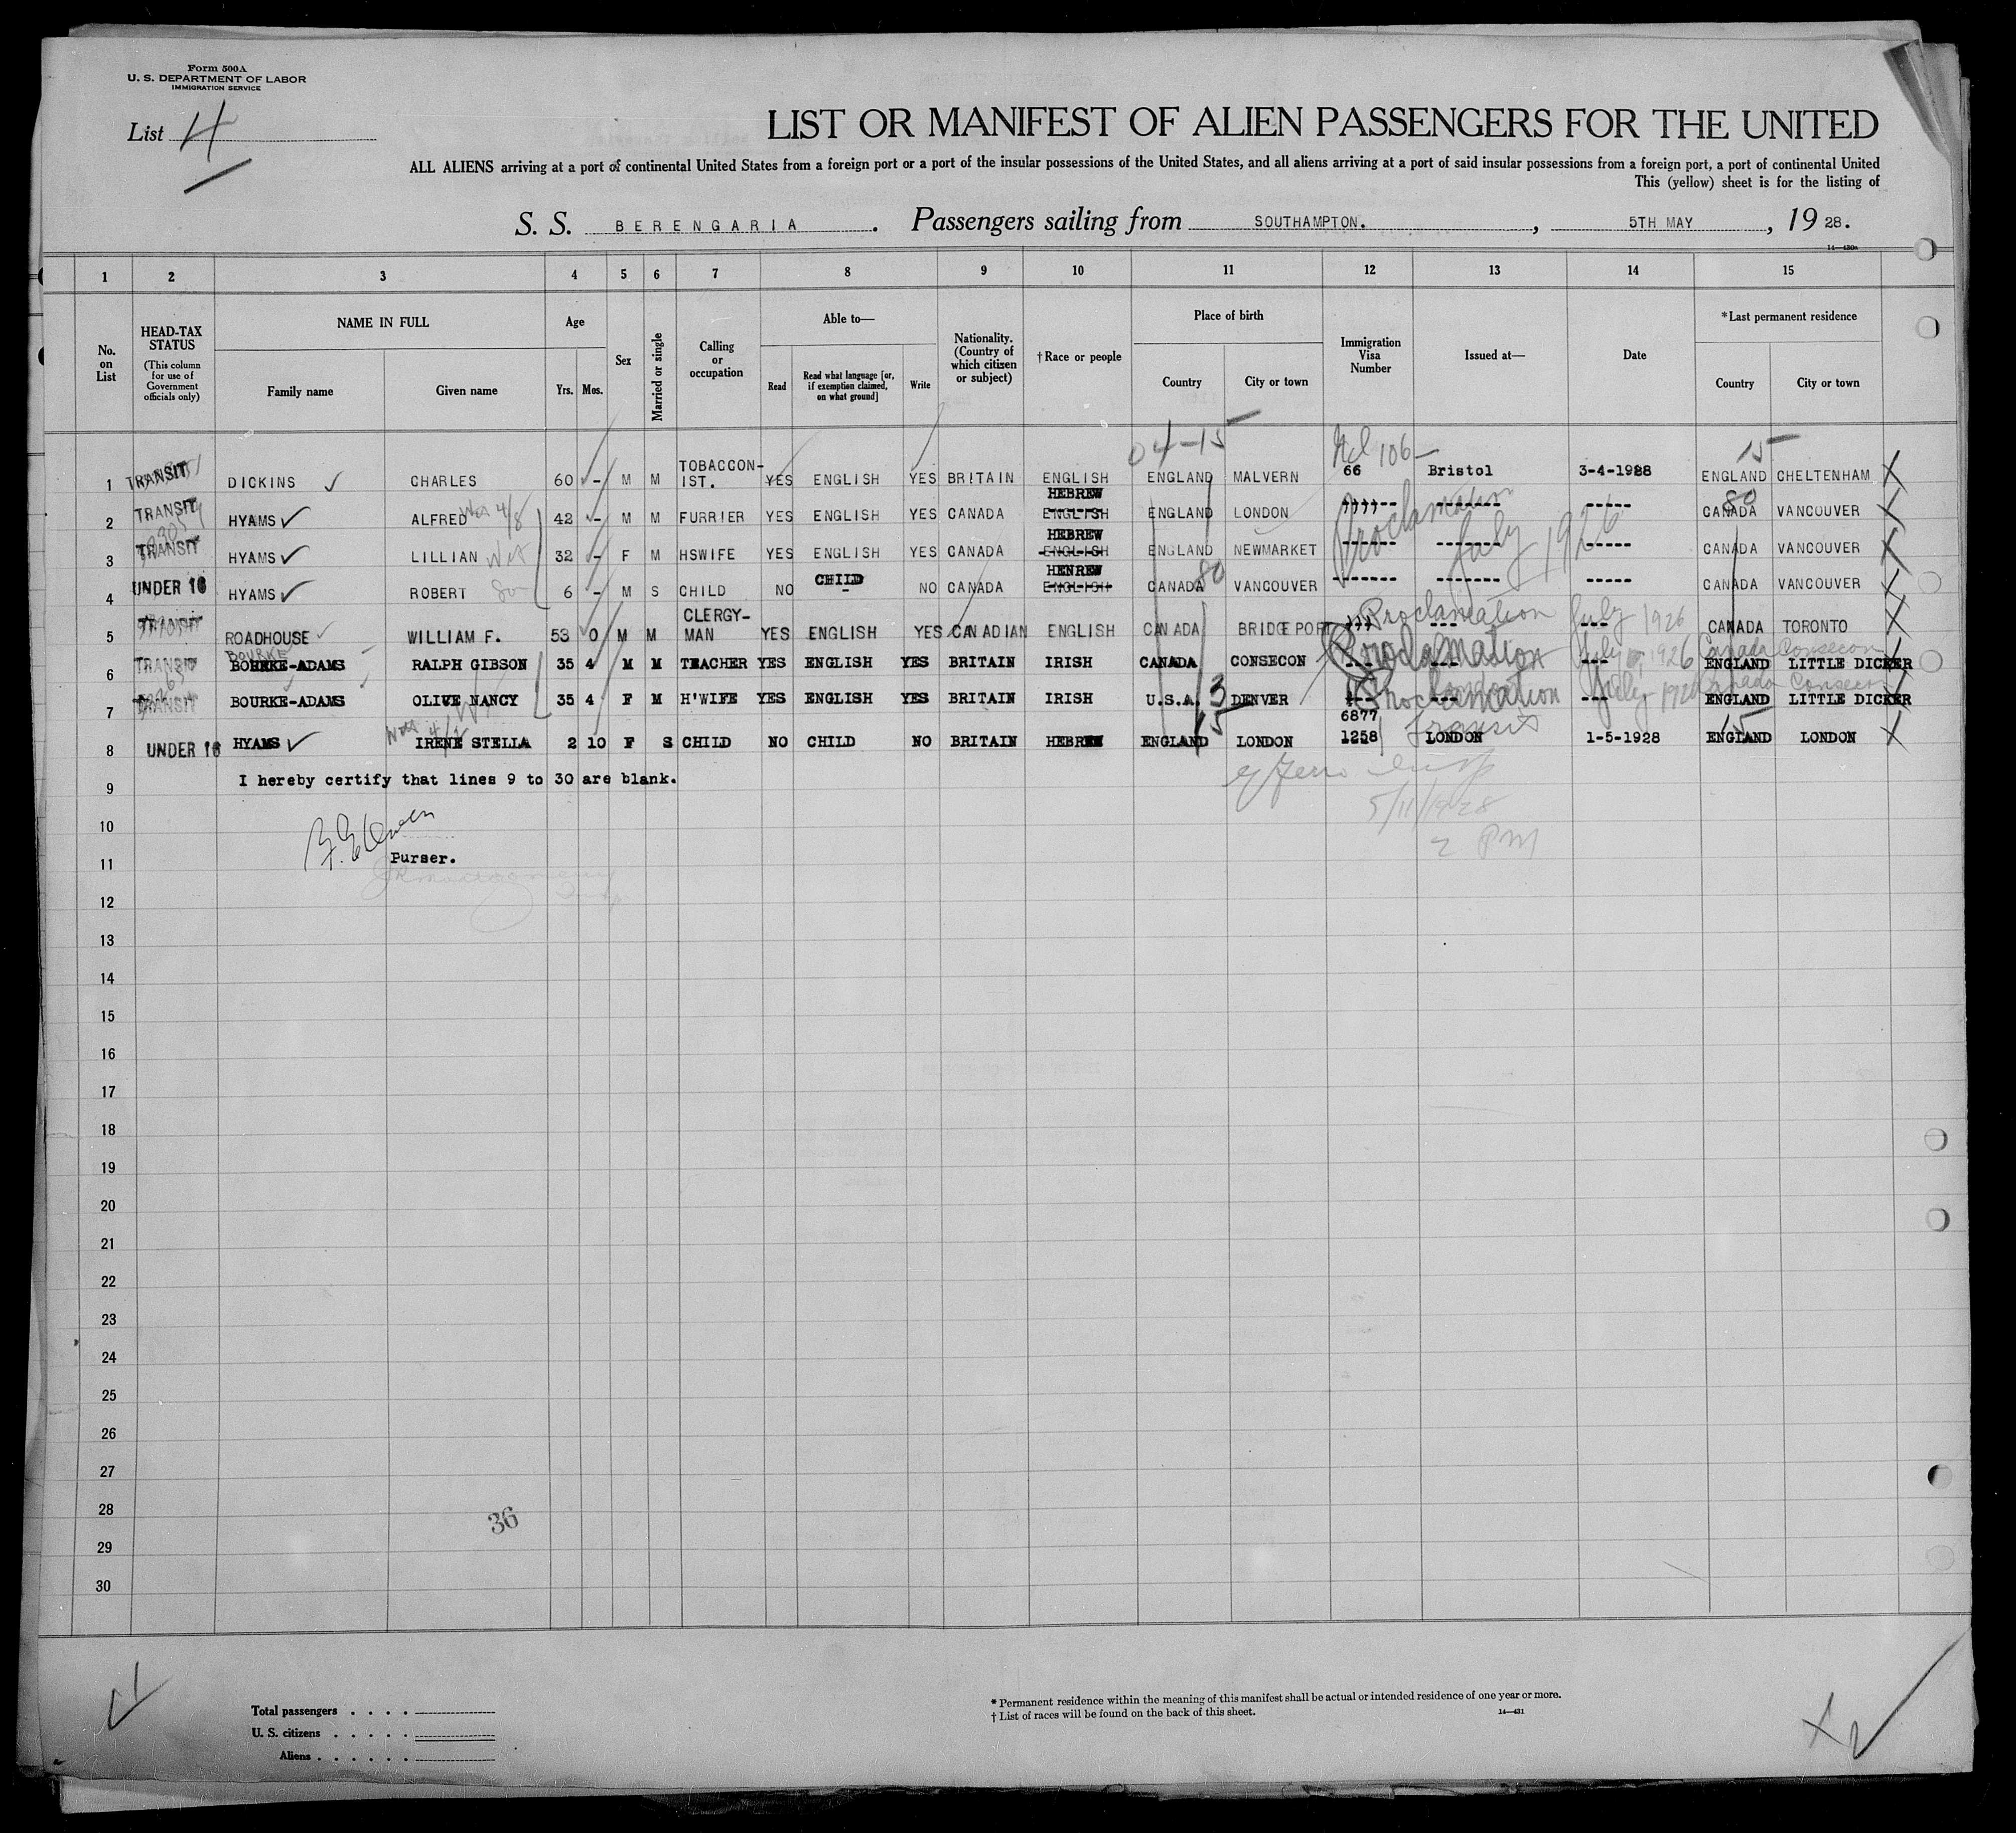 Form 500A
U. S. DEPARTMENT OF LABOR
IMMIGRATION SERVICE
List 4
LIST OR MANIFEST OF ALIEN PASSENGERS FOR THE UNITED
ALL ALIENS arriving at a port of continental United States from a foreign port or a port of the insular possessions of the United States, and all aliens arriving at a port of said insular possessions from a foreign port, a port of continental United
This (yellow) sheet is for the listing of
S. S. BERENGARIA. Passengers sailing from SOUTHAMPTON., 5TH MAY, 19 28.
14—430a
1 2 3 4 5 6 7 8 9 10 11 12 13 14 15
No. on List
HEAD-TAX STATUS (This column for use of Government officials only)
NAME IN FULL
Family name Given name
Age
Yrs. Mos.
Sex
Married or single
Calling or occupation
Able to—
Read Read what language [or, if exemption claimed, on what ground] Write
Nationality. (Country of which citizen or subject)
†Race or people
Place of birth
Country City or town
Immigration Visa Number
Issued at—
Date
*Last permanent residence
Country City or town
04-15 106- 15
1 TRANSIT DICKINS CHARLES 60 - M M TOBACCON-IST. YES ENGLISH YES BRITAIN ENGLISH ENGLAND MALVERN 66 Bristol 3-4-1928 ENGLAND CHELTENHAM X
80
2 TRANSIT HYAMS ALFRED 4/8 42 - M M FURRIER YES ENGLISH YES CANADA HEBREW ENGLISH ENGLAND LONDON ----- Proclamation ----- CANADA VANCOUVER X
3 TRANSIT HYAMS LILLIAN 32 - F M HSWIFE YES ENGLISH YES CANADA HEBREW ENGLISH ENGLAND NEWMARKET ------- ------- July 1926 ----- CANADA VANCOUVER X
4 UNDER 16 HYAMS ROBERT 6 - M S CHILD NO CHILD - NO CANADA HENREW ENGLISH CANADA 80 VANCOUVER ------- ------- ----- CANADA VANCOUVER X
5 TRANSIT ROADHOUSE WILLIAM F. 53 0 M M CLERGY-MAN YES ENGLISH YES CANADIAN ENGLISH CANADA BRIDGEPORT Proclamation --- July 1926 CANADA TORONTO X
BOURKE
6 TRANSIT BOURKE-ADAMS RALPH GIBSON 35 4 M M TEACHER YES ENGLISH YES BRITAIN IRISH CANADA CONSECON --- Proclamation --- July 1926 Canada Consecon ENGLAND LITTLE DICKER
7 TRANSIT BOURKE-ADAMS OLIVE NANCY 35 4 F M H'WIFE YES ENGLISH YES BRITAIN IRISH U.S.A. 3 DENVER --- Proclamation --- July 1926 Canada Consecon ENGLAND LITTLE DICKER
6877 Transit
8 UNDER 16 HYAMS IRENE STELLA 2 10 F S CHILD NO CHILD NO BRITAIN HEBREW ENGLAND 15 LONDON 1258 LONDON 1-5-1928 ENGLAND 15 LONDON X
9 I hereby certify that lines 9 to 30 are blank.
5/11/1928
10
2 PM
11 Purser.
12
13
14
15
16
17
18
19
20
21
22
23
24
25
26
27
28
36
29
30
Total passengers . . . .
U. S. citizens . . . . .
Aliens . . . . . .
* Permanent residence within the meaning of this manifest shall be actual or intended residence of one year or more.
† List of races will be found on the back of this sheet.
14—431